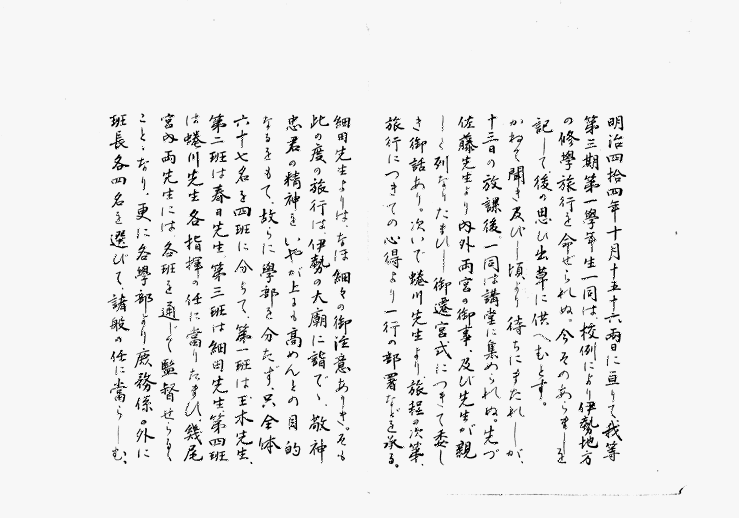 明治四拾四年十月十五十六兩日に亘りて我等
第三期第一學年生一同は校例により伊勢地方
の修學旅行を命せられぬ。今そのあらましを
記して後の思ひ出草に供へむとす。
かねて聞き及びし頃より待ちにまたれしが、
十三日の放課後一同は講堂に集められぬ。先づ
佐藤先生より内外兩宮の御事、及び先生が親
しく列なりたまひし御遷宮式につきて委し
き御話あり。次いで蜷川先生より、旅程の次第、
旅行につきての心得より一行の部署などを承る。
細田先生よりは、なほ細々の御注意ありき。そも
此の度の旅行は、伊勢の大廟に詣でゝ、敬神
忠君の精神をいやが上にも高めんとの目的
なるをもて、故らに學部を分たず、只全体
六十七名を四班に分ちて、第一班は玉木先生、
第二班は春日先生、第三班は細田先生、第四班
は蜷川先生各指揮の任に當りたまひ、幾尾
宮内両先生には、各班を通じて監督せらるゝ
ことゝなり、更に各學部より庶務係の外に
班長各四名を選びて、諸般の任に當らしむ、